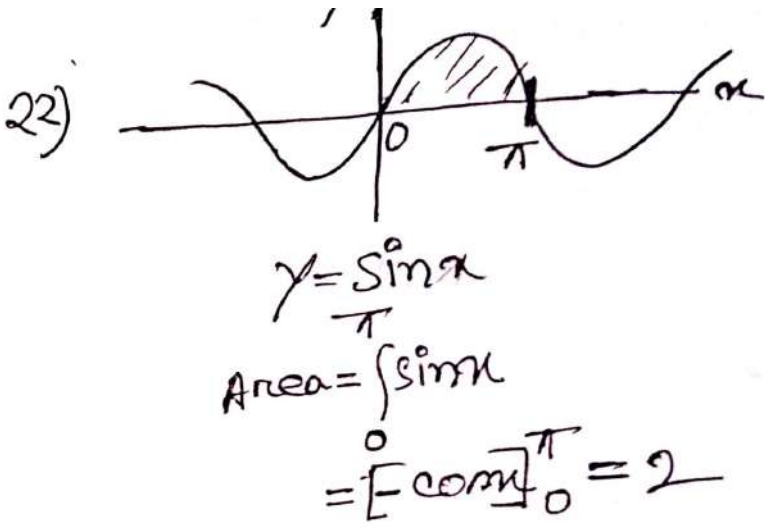 22)
y
x
0
π
y = sinx
Area = ∫₀^π sinx
= [-cosx]₀^π = 2